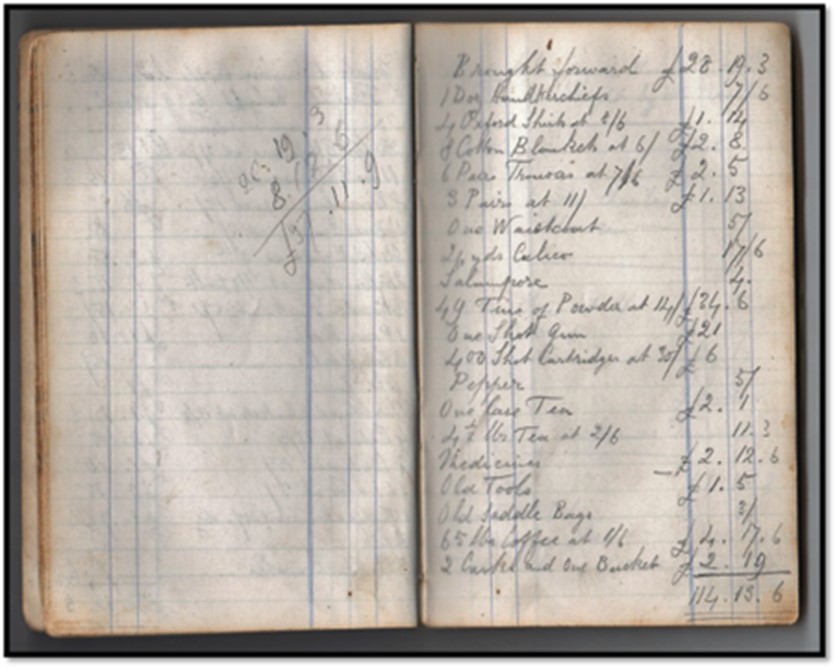 28. 19. 3
8. 12. 6
£37. 11. 9
Brought forward £28. 19. 3
1 Doz Handkerchiefs 7/6
4 Oxford Shirts at 8/6 £1. 14
8 Cotton Blankets at 6/ £2. 8.
6 Pairs Trousers at 7/6 £2. 5
3 Pairs at 11/ £1. 13
One Waistcoat 5/
24 yds Calico 17/6
Salampose 4.
49 Tins of Powder at 14/ £34. 6
One Shot Gun £21
400 Shot Cartridges at 30/ £6
Pepper 5/
One Case Tea £2. 1
4½ lbs Tea at 2/6 11. 3
Medicines £2. 12. 6
Old Tools £1. 5
Old Saddle Bags 3/
65 lbs Coffee at 1/6 £4. 17. 6
2 and One Bucket £2. 19
114. 13. 6